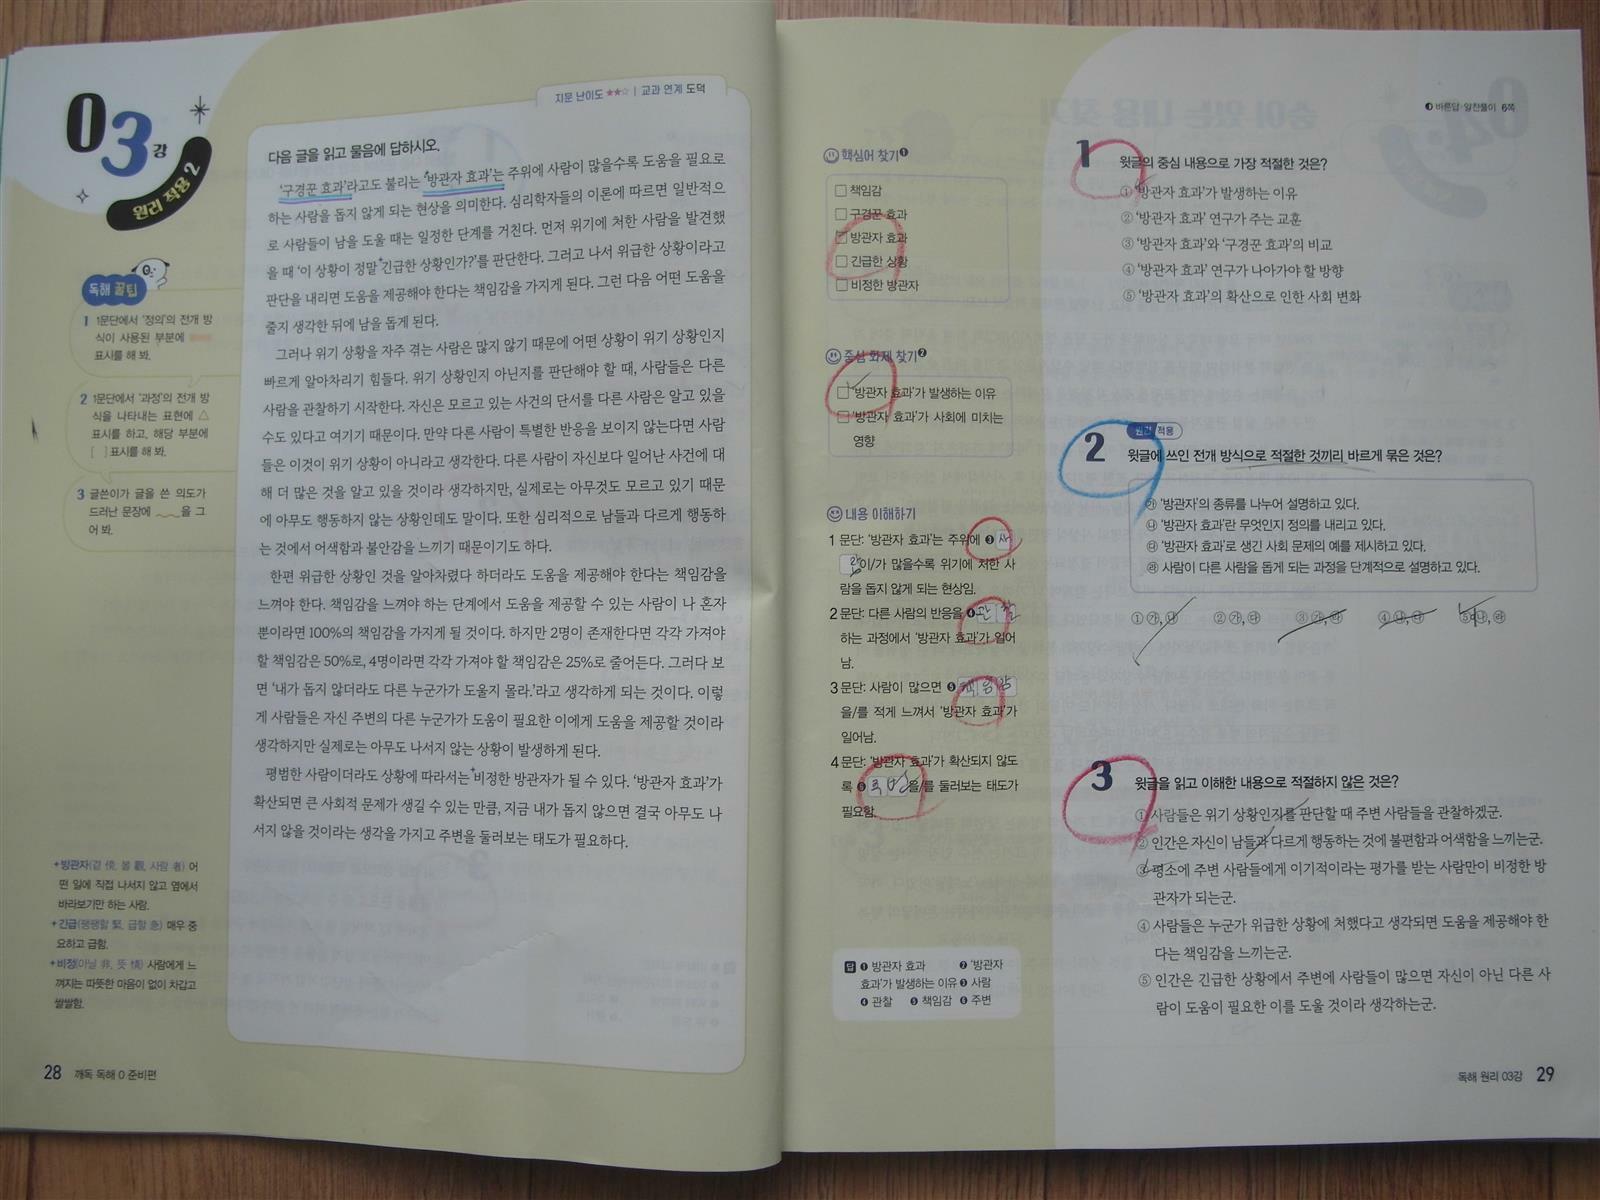 03강
원리 적용 2
지문 난이도 ★★☆ | 교과 연계 도덕
다음 글을 읽고 물음에 답하시오.
‘구경꾼 효과’라고도 불리는 ‘방관자 효과’는 주위에 사람이 많을수록 도움을 필요로
하는 사람을 돕지 않게 되는 현상을 의미한다. 심리학자들의 이론에 따르면 일반적으
로 사람들이 남을 도울 때는 일정한 단계를 거친다. 먼저 위기에 처한 사람을 발견했
을 때 ‘이 상황이 정말 긴급한 상황인가?’를 판단한다. 그러고 나서 위급한 상황이라고
판단을 내리면 도움을 제공해야 한다는 책임감을 가지게 된다. 그런 다음 어떤 도움을
줄지 생각한 뒤에 남을 돕게 된다.
그러나 위기 상황을 자주 겪는 사람은 많지 않기 때문에 어떤 상황이 위기 상황인지
빠르게 알아차리기 힘들다. 위기 상황인지 아닌지를 판단해야 할 때, 사람들은 다른
사람을 관찰하기 시작한다. 자신은 모르고 있는 사건의 단서를 다른 사람은 알고 있을
수도 있다고 여기기 때문이다. 만약 다른 사람이 특별한 반응을 보이지 않는다면 사람
들은 이것이 위기 상황이 아니라고 생각한다. 다른 사람이 자신보다 일어난 사건에 대
해 더 많은 것을 알고 있을 것이라 생각하지만, 실제로는 아무것도 모르고 있기 때문
에 아무도 행동하지 않는 상황인데도 말이다. 또한 심리적으로 남들과 다르게 행동하
는 것에서 어색함과 불안감을 느끼기 때문이기도 하다.
한편 위급한 상황인 것을 알아차렸다 하더라도 도움을 제공해야 한다는 책임감을
느껴야 한다. 책임감을 느껴야 하는 단계에서 도움을 제공할 수 있는 사람이 나 혼자
뿐이라면 100%의 책임감을 가지게 될 것이다. 하지만 2명이 존재한다면 각각 가져야
할 책임감은 50%로, 4명이라면 각각 가져야 할 책임감은 25%로 줄어든다. 그러다 보
면 ‘내가 돕지 않더라도 다른 누군가가 도울지 몰라.’라고 생각하게 되는 것이다. 이렇
게 사람들은 자신 주변의 다른 누군가가 도움이 필요한 이에게 도움을 제공할 것이라
생각하지만 실제로는 아무도 나서지 않는 상황이 발생하게 된다.
평범한 사람이더라도 상황에 따라서는 비정한 방관자가 될 수 있다. ‘방관자 효과’가
확산되면 큰 사회적 문제가 생길 수 있는 만큼, 지금 내가 돕지 않으면 결국 아무도 나
서지 않을 것이라는 생각을 가지고 주변을 둘러보는 태도가 필요하다.
독해 꿀팁
1 1문단에서 ‘정의’의 전개 방
식이 사용된 부분에
표시를 해 봐.
2 1문단에서 ‘과정’의 전개 방
식을 나타내는 표현에 △
표시를 하고, 해당 부분에
[ ] 표시를 해 봐.
3 글쓴이가 글을 쓴 의도가
드러난 문장에 을 그
어 봐.
+방관자(곁 傍, 볼 觀, 사람 者) 어
떤 일에 직접 나서지 않고 옆에서
바라보기만 하는 사람.
+긴급(팽팽할 緊, 급할 急) 매우 중
요하고 급함.
+비정(아닐 非, 뜻 情) 사람에게 느
껴지는 따뜻한 마음이 없이 차갑고
쌀쌀함.
28 깨독 독해 0 준비편
바른답·알찬풀이 6쪽
핵심어 찾기❶
□ 책임감
□ 구경꾼 효과
□ 방관자 효과
□ 긴급한 상황
□ 비정한 방관자
중심 화제 찾기❷
□ ‘방관자 효과’가 발생하는 이유
□ ‘방관자 효과’가 사회에 미치는
영향
내용 이해하기
1문단: ‘방관자 효과’는 주위에 ❸ 사
람이/가 많을수록 위기에 처한 사
람을 돕지 않게 되는 현상임.
2문단: 다른 사람의 반응을 ❹ 관찰
하는 과정에서 ‘방관자 효과’가 일어
남.
3문단: 사람이 많으면 ❺ 책임감
을/를 적게 느껴서 ‘방관자 효과’가
일어남.
4문단: ‘방관자 효과’가 확산되지 않도
록 ❻ 을/를 둘러보는 태도가
필요함.
답 ❶ 방관자 효과 ❷ ‘방관자
효과’가 발생하는 이유 ❸ 사람
❹ 관찰 ❺ 책임감 ❻ 주변
1 윗글의 중심 내용으로 가장 적절한 것은?
① ‘방관자 효과’가 발생하는 이유
② ‘방관자 효과’ 연구가 주는 교훈
③ ‘방관자 효과’와 ‘구경꾼 효과’의 비교
④ ‘방관자 효과’ 연구가 나아가야 할 방향
⑤ ‘방관자 효과’의 확산으로 인한 사회 변화
원리 적용
2 윗글에 쓰인 전개 방식으로 적절한 것끼리 바르게 묶은 것은?
㉮ ‘방관자’의 종류를 나누어 설명하고 있다.
㉯ ‘방관자 효과’란 무엇인지 정의를 내리고 있다.
㉰ ‘방관자 효과’로 생긴 사회 문제의 예를 제시하고 있다.
㉱ 사람이 다른 사람을 돕게 되는 과정을 단계적으로 설명하고 있다.
① ㉮, ㉯ ② ㉮, ㉰ ③ ㉮, ㉱ ④ ㉯, ㉰ ⑤ ㉯, ㉱
3 윗글을 읽고 이해한 내용으로 적절하지 않은 것은?
① 사람들은 위기 상황인지를 판단할 때 주변 사람들을 관찰하겠군.
② 인간은 자신이 남들과 다르게 행동하는 것에 불편함과 어색함을 느끼는군.
③ 평소에 주변 사람들에게 이기적이라는 평가를 받는 사람만이 비정한 방
관자가 되는군.
④ 사람들은 누군가 위급한 상황에 처했다고 생각되면 도움을 제공해야 한
다는 책임감을 느끼는군.
⑤ 인간은 긴급한 상황에서 주변에 사람들이 많으면 자신이 아닌 다른 사
람이 도움이 필요한 이를 도울 것이라 생각하는군.
독해 원리 03강 29